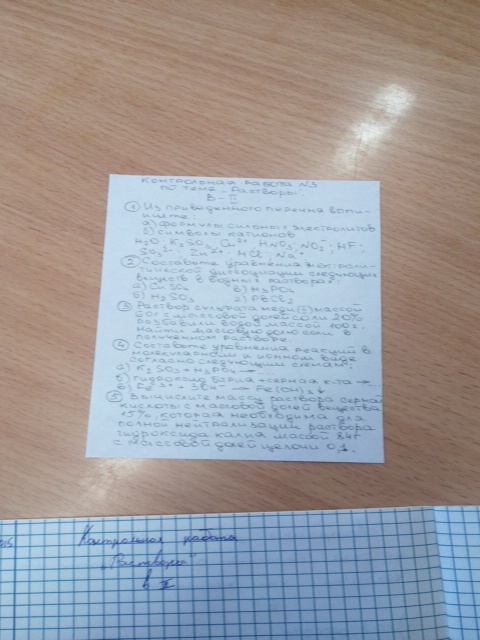 Контрольная работа №3
по теме „Растворы".
В-II
① Из приведенного перечня выпи-
шите:
а) формулы сильных электролитов
б) символы катионов
H₂O; K₂SO₃, Cu²⁺, HNO₃, NO₃⁻, HF;
Zn²⁺, HCl, Na⁺
② Составьте уравнения электроли-
тической диссоциации следующих
веществ в водных растворах:
а) CuSO₄ в) H₃PO₄
б) H₂SO₃ г)
③ Раствор сульфата меди (II) массой
с массовой долей соли 20%
разбавили водой массой 100 г.
Найти массовую долю соли в
полученном растворе.
④ Составьте уравнения реакций в
молекулярном и ионном виде
согласно следующим схемам:
а) K₂SO₃ + H₃PO₄ → ...
б) гидроксид бария + серная к-та → ...
в) Fe³⁺ + 3OH⁻ → Fe(OH)₃↓
⑤ Вычислите массу раствора серной
кислоты с массовой долей вещества
15%, которая необходима для
полной нейтрализации раствора
гидроксида калия массой 84г
с массовой долей щелочи 0,1.
Контрольная работа
„Растворы"
В II